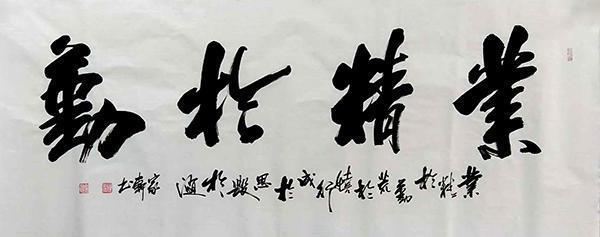 業精於勤
業精於勤荒於嬉行成於思毀於隨 家书